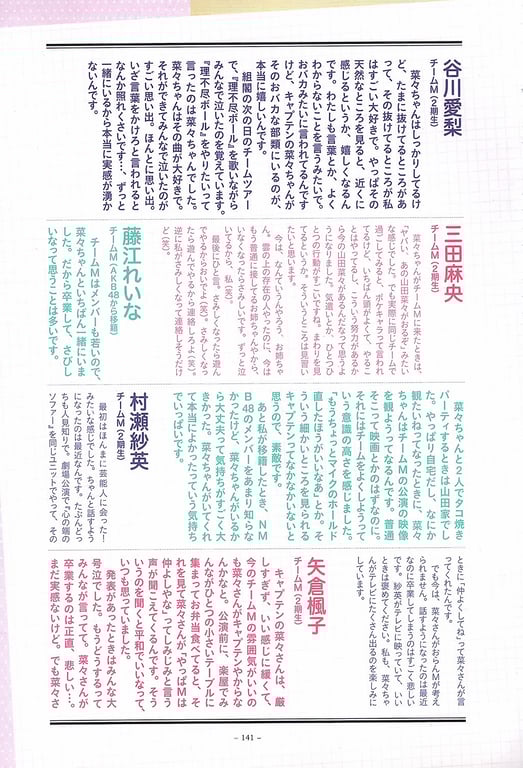 谷川愛梨
チームM(2期生)
菜々ちゃんはしっかりしてるけ
ど、たまに抜けてるところがあ
って、その抜けてるところが私
はすごい大好きで。やっぱその
天然なところを見ると、近くに
感じるというか、嬉しくなるん
です。わたしも言葉とか、よく
わからないことを言うみたいで、
おバカみたいに言われてるんです
けど、キャプテンの菜々ちゃんが
そのおバカな部類にいるのが、
本当に嬉しいんです。
組閣の次の日のチームツアー
で、『理不尽ボール』を歌いながら
みんなで泣いたのを覚えています。
『理不尽ボール』をやりたいって
言ったのは菜々ちゃんでした。
菜々ちゃんはその曲が大好きで。
それができてみんなで泣いたのが
すごい思い出。ほんとに思い出。
いざ言葉をかけろと言われると
なんか照れくさいです…、ずっと
一緒にいるから本当に実感が湧か
ないんです。
三田麻央
チームM(2期生)
菜々ちゃんがチームMに来たときは、
「ヤバい、あの山田菜々がおるぞ」みたい
な感じでした。でも実際に同じチームで
過ごしてみると、ポケキャラって言われ
てるけど、いちばん頭がよくて、やるこ
とはやってるし、こういう努力があるか
ら今の山田菜々があるんだなって思うよ
うになりました。気遣いとか、ひとつひ
とつの行動がすごいですね。まわりを見
てるというか。そういうところは見習い
たいと思います。
今は、なんていうんやろう、お姉ちゃ
ん。雲の上の存在の人やったのに、今は
もう普通に接してるお姉ちゃんやから、
いなくなったらさみしいです。ずっと泣
いてるから、私(笑)。
最後にひと言。さみしくなったら遊ん
でやるからおいでよ(笑)。さみしくなっ
たら遊んでやるから連絡しろよ(笑)。
逆に私がさみしくなって連絡しそうだけ
ど(笑)。
藤江れいな
チームM(AKB48から移籍)
チームMはメンバーも若いので、
菜々ちゃんといちばん一緒にいま
した。だから卒業して、さびし
いなって思うことは多いです。
菜々ちゃんと2人でタコ焼き
パーティするときは山田家でし
た。やっぱり自宅だし、なにか
観たいねってなったときに、菜々
ちゃんはチームMの公演の映像
を観ようってなるんです。普通
そこって映画とかのはずなのに。
それにはチームをよくしようって
いう意識の高さを感じました。
「もうちょっとマイクのホールド
直したほうがいいなあ」とか。そ
ういう細かいところを見られる
キャプテンってなかなかいないと
思うので、素敵です。
あと私が移籍したとき、NM
B48のメンバーをあまり知らな
かったけど、菜々ちゃんがいるか
ら大丈夫って気持ちがすごく大
きかった。菜々ちゃんがいてくれ
て本当によかったっていう気持ち
でいっぱいです。
村瀬紗英
チームM(2期生)
最初はほんまに芸能人に会った!
みたいな感じでした。ちゃんと話すよう
になったのは最近なんです。たぶんどっ
ちも人見知りで。劇場公演で『心の端の
ソファー』を同じユニットでやって、その
ときに、「仲よしてしてね」って菜々さんが言
ってくれたんです。
でも今は、菜々さんがおらんMが考え
られません。話すようになったのは最近
なのに卒業してしまうのはすごく悲しい
です。紗英がテレビに映っていて、いい
ときは褒めてください。私も、菜々ちゃ
んがテレビにたくさん出るのを楽しみに
しています。
矢倉楓子
チームM(2期生)
キャプテンの菜々さんは、厳
しすぎず、いい感じに緩くて、
今のチームMの雰囲気がいいの
も菜々さんがキャプテンやからな
んかなと。公演前に、楽屋でみ
んながひとつの小さいテーブルに
集まってお弁当食べてると、そ
れを見て菜々さんが、「やっぱMは
仲よしやな」ってしみじみと言う
声が聞こえてくるんです。そう
いうのを聞くと平和でいいなって、
いつも思っていました。
発表があったときはみんな大
号泣でした。もうどうするって
みんなが言ってて。菜々さんが
卒業するのは正直、悲しい…。
まだ実感ないけど。でも菜々さ
- 141 -